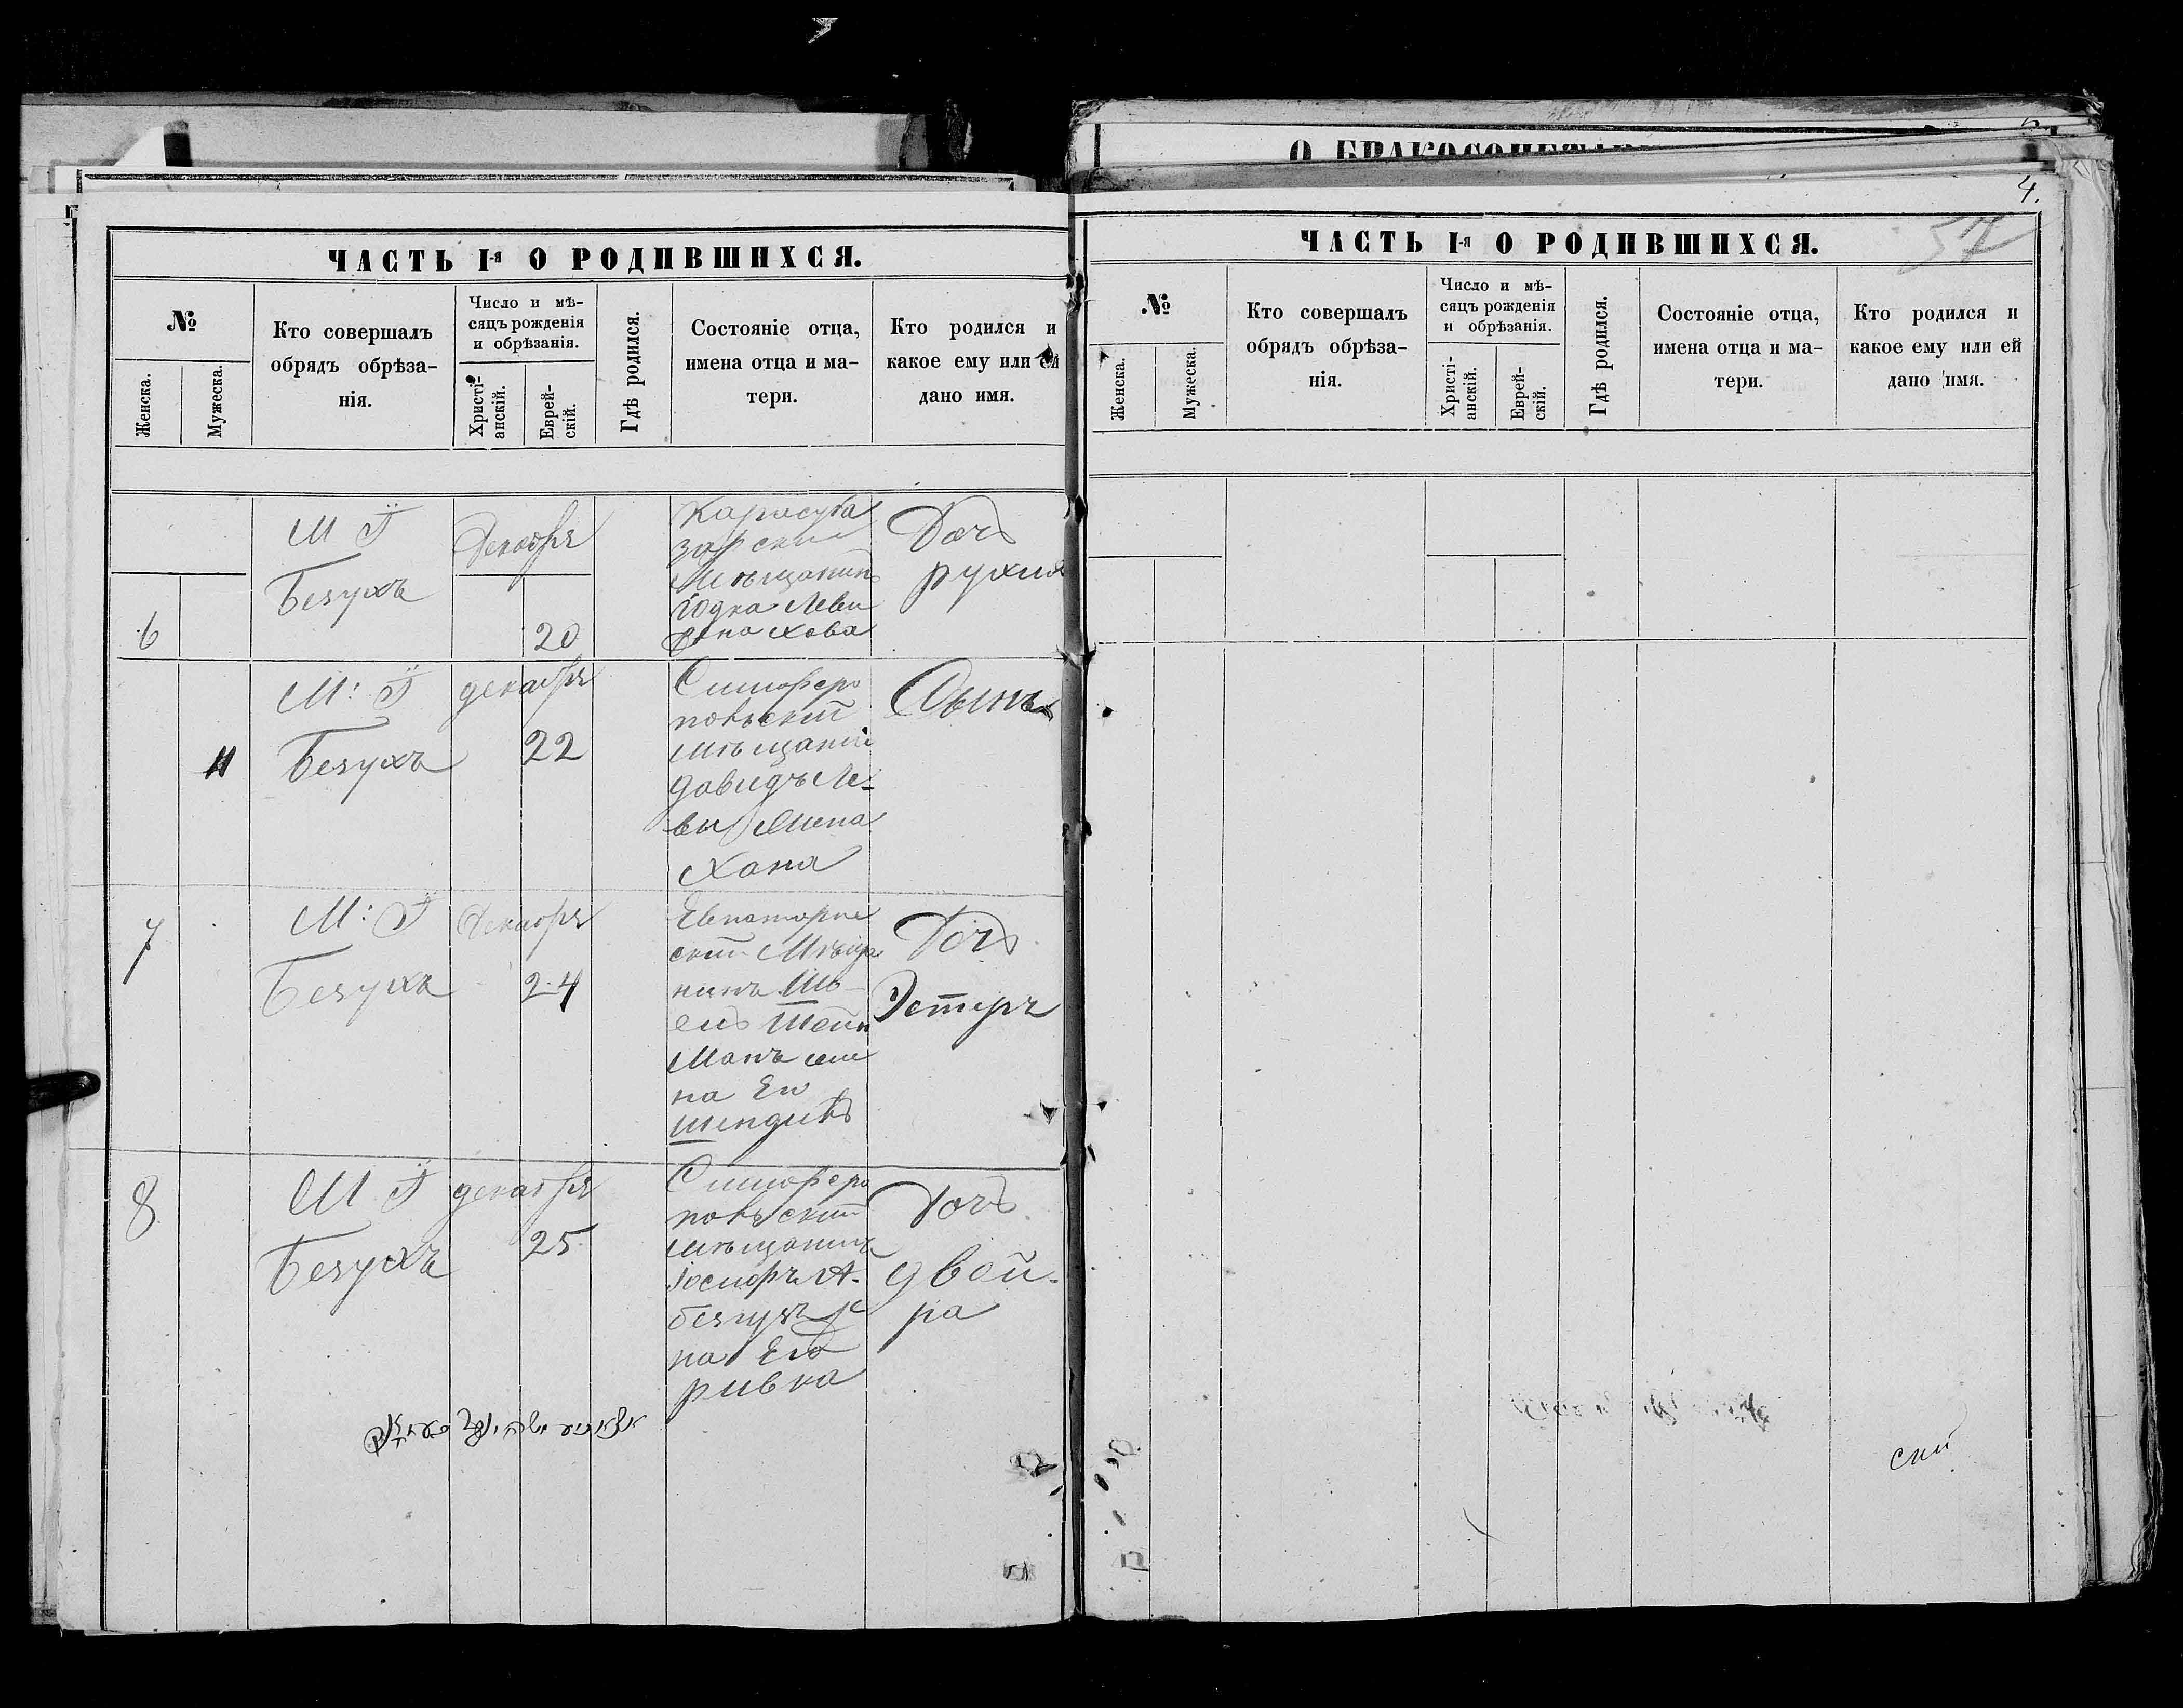 О БРАКОСОЧЕТАВ
4.
57
ЧАСТЬ I-я О РОДИВШИХСЯ.
№
Женска.
Мужеска.
Кто совершалъ
обрядъ обрѣза-
нія.
Число и мѣ-
сяцъ рожденія
и обрѣзанія.
Христі-
анскій.
Еврей-
скій.
Гдѣ родился.
Состояніе отца,
имена отца и ма-
тери.
Кто родился и
какое ему или ей
дано имя.
6
М Г
Безухъ
Декабря
20
Карасуба
зарскій
Мѣщанинъ
Юдка Леви
жена Хова
Дочъ
рухля
11
М: Г
Безухъ
декабря
22
Симферо
польскій
мѣщанин
давидъ Ле-
вы жена
Хана
Сынъ
7
М: Г
Безуха
Декабря
24
Евпаторіе
скій Мѣща
нинъ
Шейн
Манъ
на Ег
Дочъ
Эстеръ
8
М Г
Безухъ
декабря
25
Симферо
польскій
мѣщанинъ
Іосифъ А-
на Его
ривка
Дочъ
двой-
ра
ЧАСТЬ I-я О РОДИВШИХСЯ.
№
Женска.
Мужеска.
Кто совершалъ
обрядъ обрѣза-
нія.
Число и мѣ-
сяцъ рожденія
и обрѣзанія.
Христі-
анскій.
Еврей-
скій.
Гдѣ родился.
Состояніе отца,
имена отца и ма-
тери.
Кто родился и
какое ему или ей
дано имя.
скій